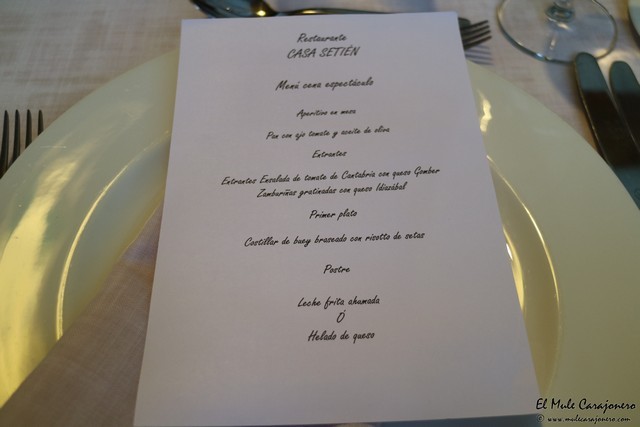 Restaurante
CASA SETIÉN
Menú cena espectáculo
Aperitivo en mesa
Pan con ajo tomate y aceite de oliva
Entrantes
Entrantes Ensalada de tomate de Cantabria con queso Gomber
Zamburiñas gratinadas con queso Idiazábal
Primer plato
Costillar de buey braseado con risotto de setas
Postre
Leche frita ahumada
Ó
Helado de queso
El Mule Carajonero
© www.mulecarajonero.com